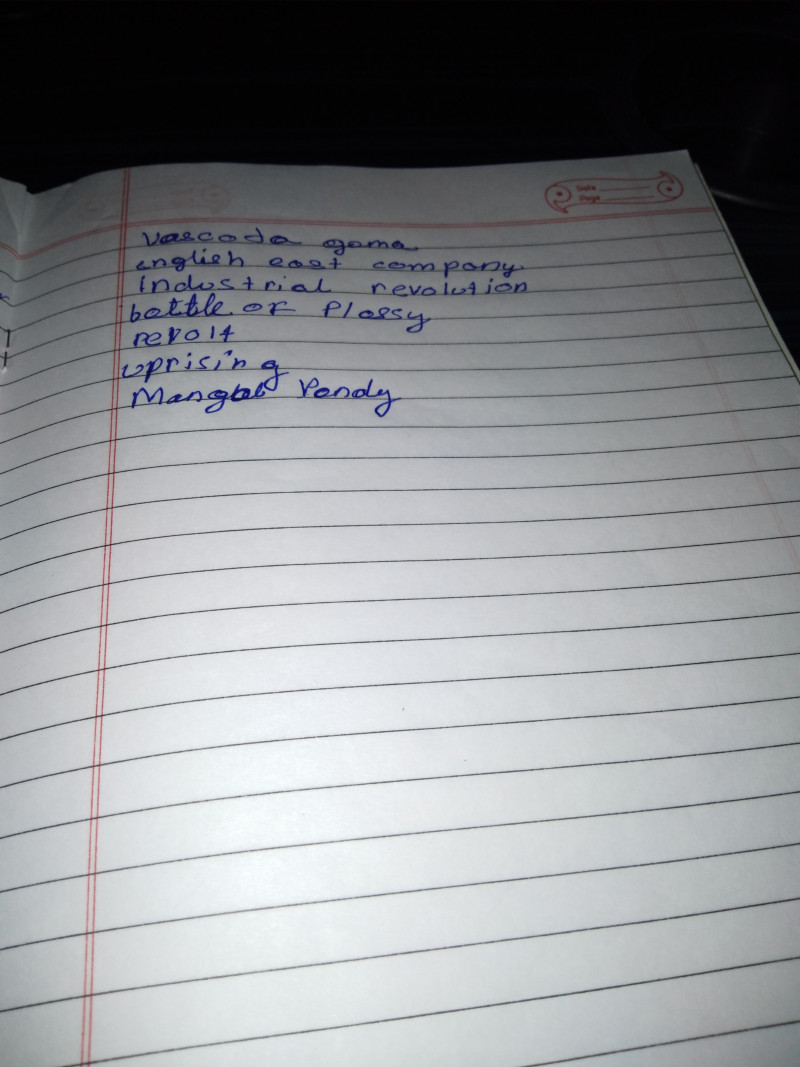 Date
Page
Vascoda gama
english east company
Industrial revolution
battle of Plassy
revolt
uprising
Mangal Pandy